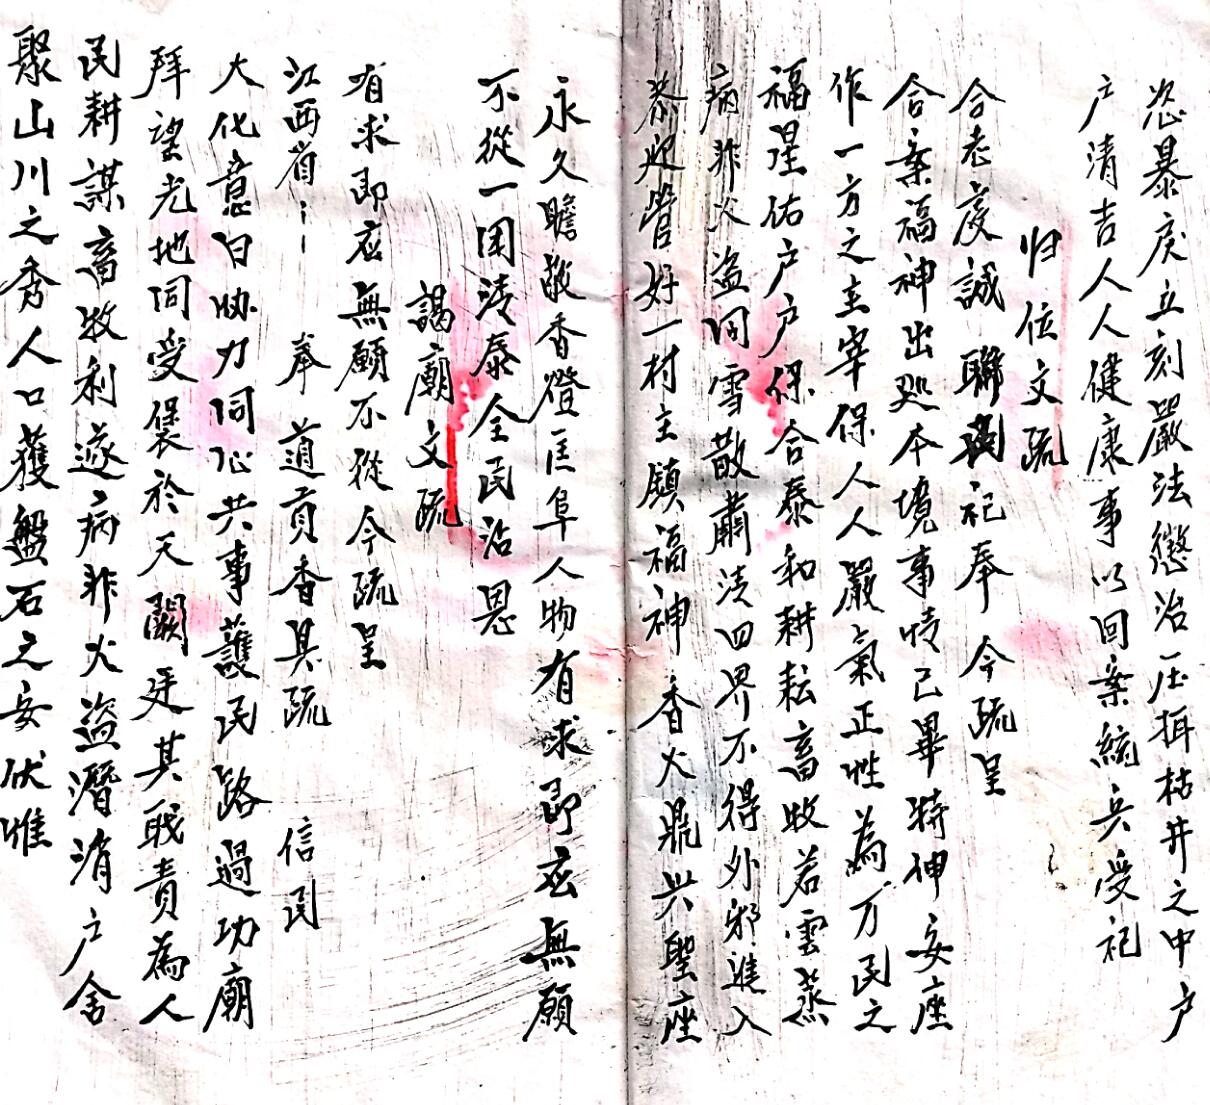 恣暴戾立刻嚴法懲治压揖枯井之中户
户清吉人人健康事以回案統兵受祀
归位文疏
合老虔誠 聯 祀奉 今疏呈
合案福神出巡本境事竣己畢特伸妥座
作一方之主宰保人人嚴氣正性為万民之
福星佑户户保合泰和耕耘畜牧若雲蒸
病非火盗同雪散肅法四界不得外邪進入
恭迎管好一村主鎮福神 香火鼎兴聖座
永久瞻敬香燈匡阜人物有求即应無願
不從一團清泰全民沾恩
謁廟文疏
有求即应無願不從今疏呈
江西省⋮⋮ 奉道貢香具疏 信民
大化意日协力同心共事護民路過功廟
拜望光地同受褒於天闕廷其戝責為人
民耕謀畜牧利遂病非火盗潛消户舍
聚山川之秀人口獲盤石之妥伏惟